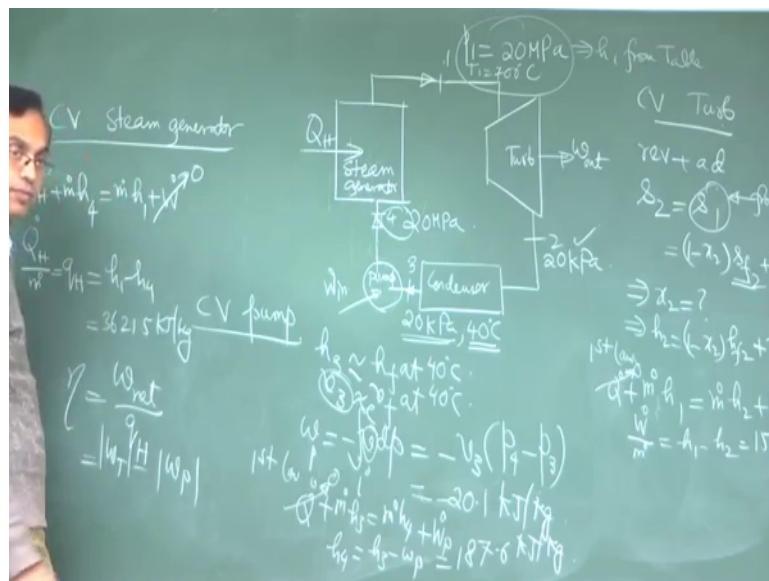 CV Steam generator
+ ṁh₄ = ṁh₁ + Ẇ⁰
Q̇_H/ṁ = q_H = h₁-h₄
= 3621.5 kJ/kg
η = w_net/q_H
= |w_T| - |w_p|
Q_H
Steam generator
1
P₁ = 20MPa ⇒ h₁ from Table
T₁=700°C
Turb
W_out
4 20MPa
2 ✓
20kPa
3
Condensor
20kPa, 40°C
pump
W_in
CV pump
h₃ ≈ h_f at 40°C.
v₃ ≈ v_f at 40°C.
w = -∫vdp = -v₃(p₄-p₃)
= -20.1 kJ/kg
1st law
Q̇⁰ + ṁh₃ = ṁh₄ + Ẇ_p
h₄ = h₃ - w_p = 187.6 kJ/kg.
CV Turb
rev + ad
s₂ = s₁
= (1-x₂) s_f2 +
⇒ x₂ = ?
⇒ h₂ = (1-x₂) h_f2 +
1st law
Q̇⁰ + ṁh₁ = ṁh₂ +
Ẇ/ṁ = h₁ - h₂ = 15